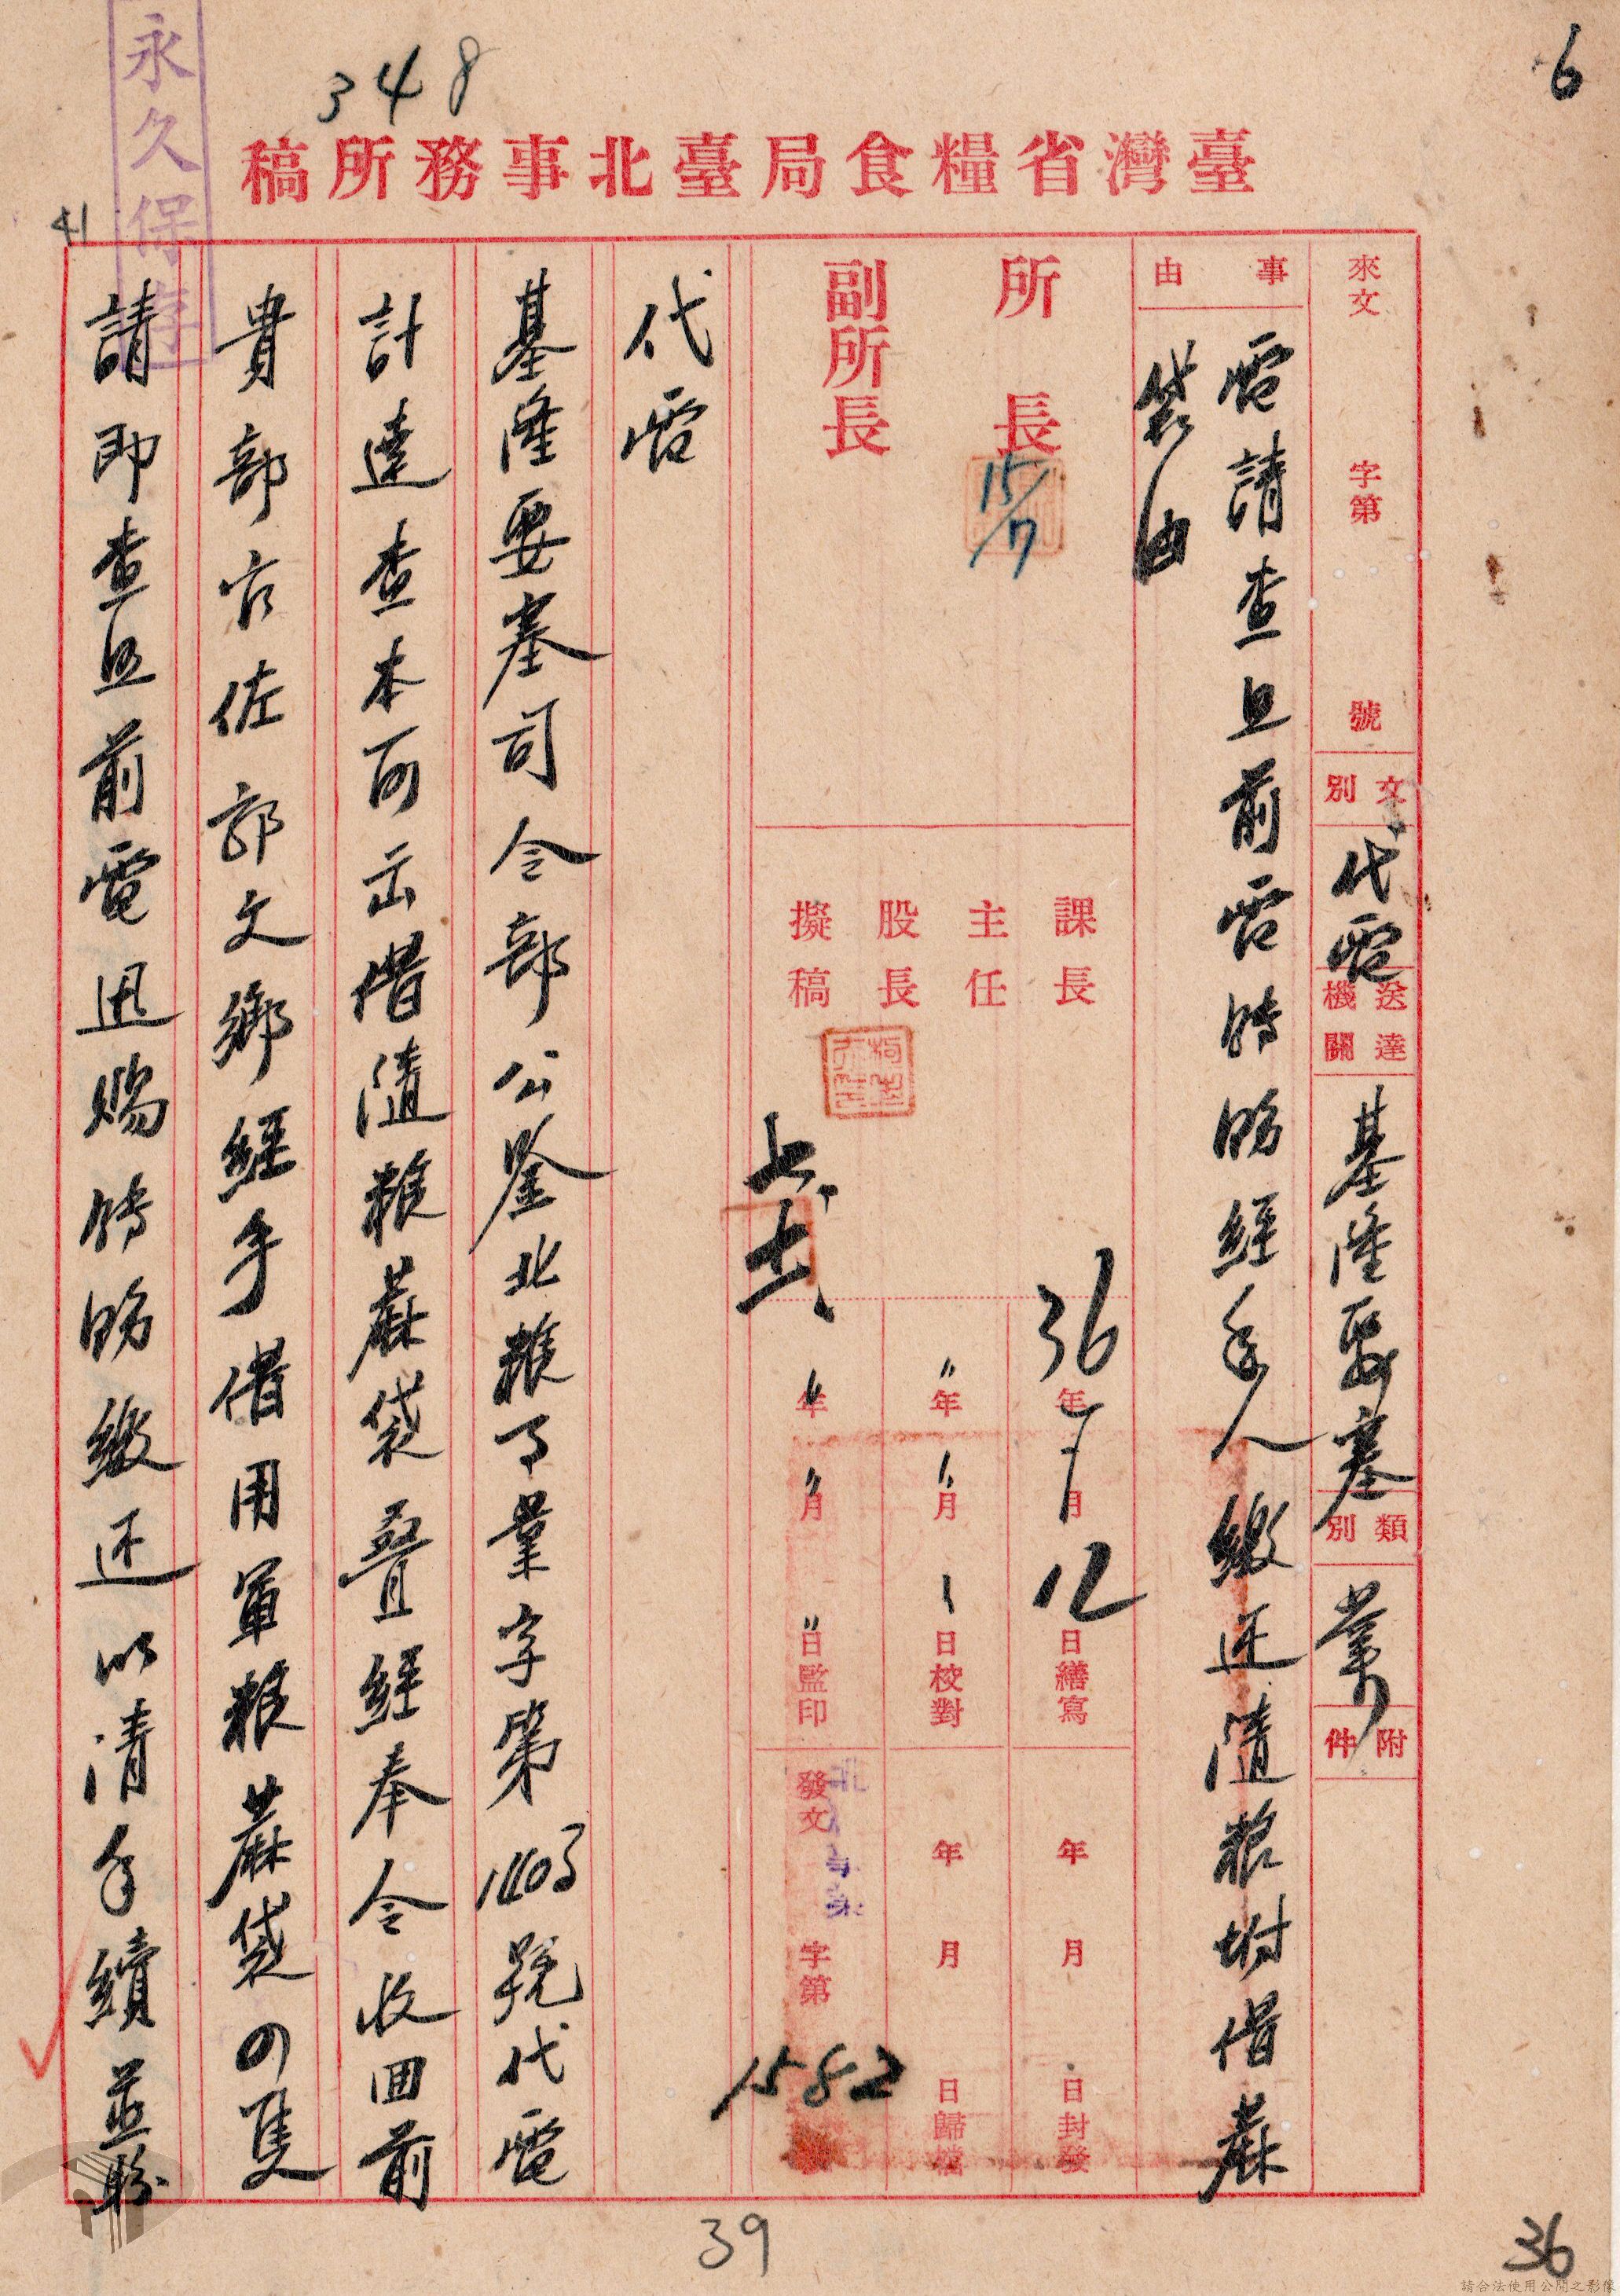 6
348
永久保存
臺灣省糧食局臺北事務所稿
41
來文
字第
號
文別
代電
送達機關
基隆要塞
類別
業
附件
事由
電請查照前電轉飭經手人繳还隨粮坿借蔴
袋由
所長
15/7
副所長
課長
主任
股長
擬稿
36年7月12日繕寫
〃年〃月〃日校對
〃年〃月〃日監印
年月日封發
年月日歸檔
發文
字第
1582
代電
基隆要塞司令部公鑒北粮事業字第号號代電
計達查本所出借隨粮蔴袋叠經奉令收囬前
貴部官佐郭文鄉經手借用軍粮蔴袋四隻
請即查照前電迅賜轉飭繳还以清手續並盼
39
36
請合法使用公開之影像